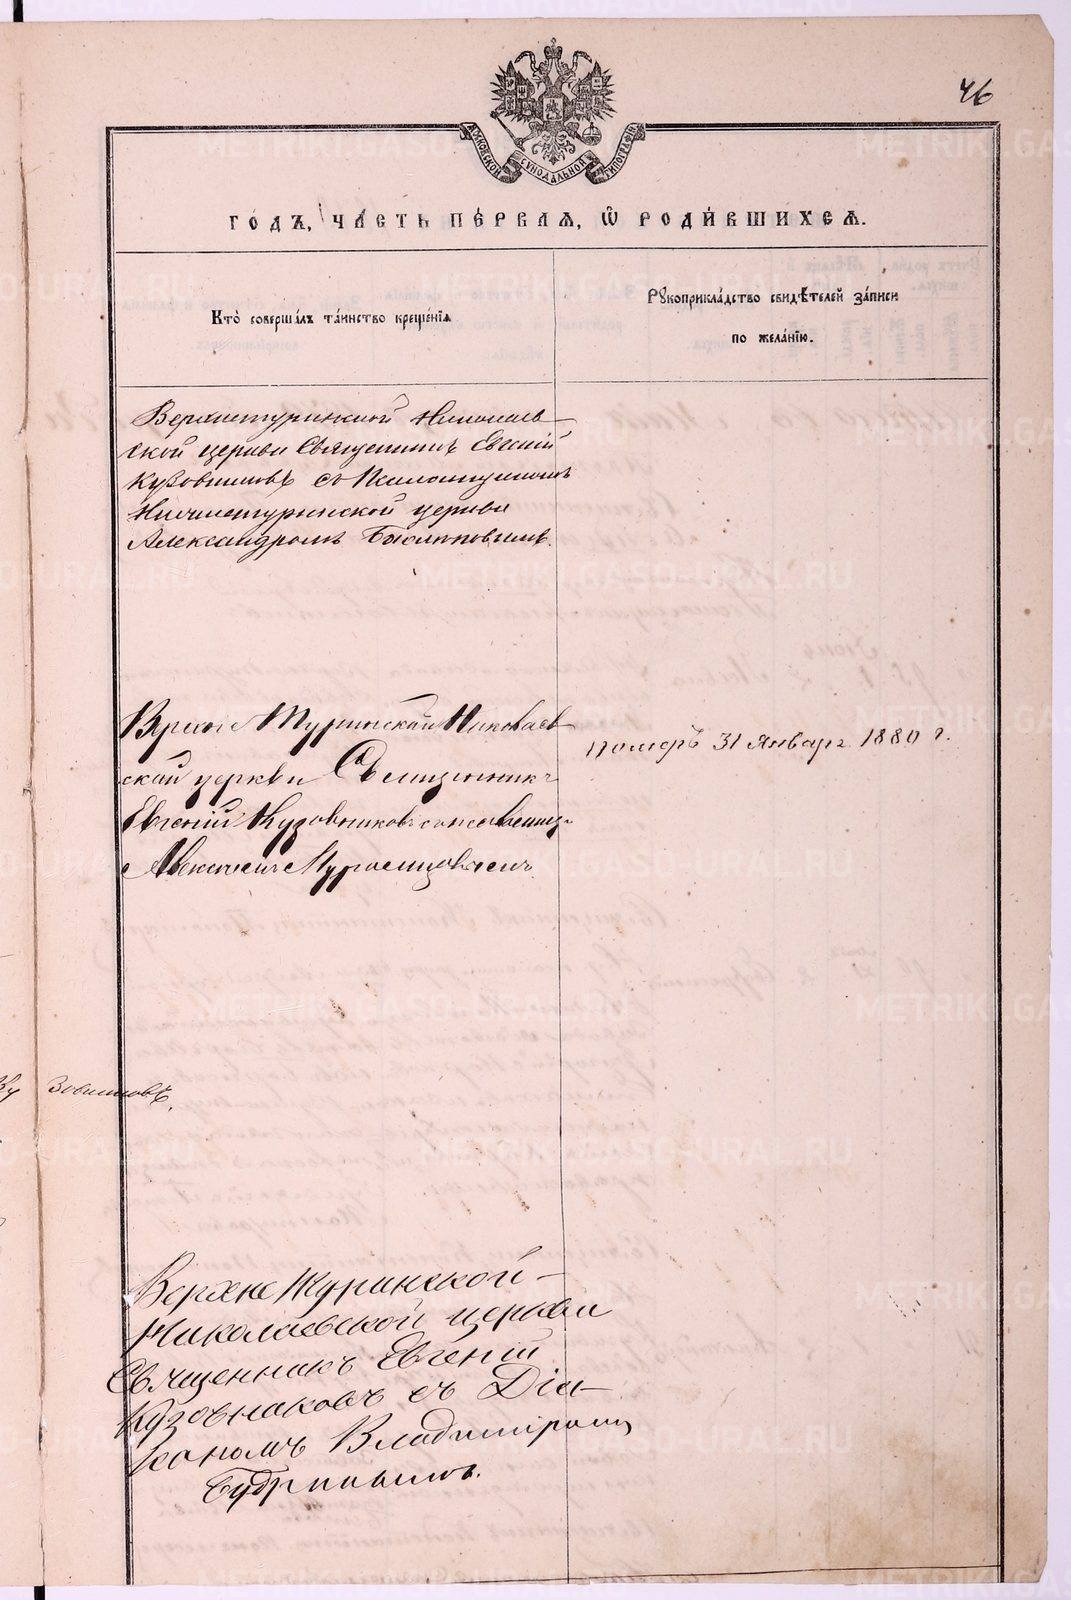 46
МОСКОВСКОЙ СѴНОДАЛЬНОЙ ТИПОГРАФІИ
ГОДЪ, ЧАСТЬ ПЕРВАЯ, Ѿ РОДИВШИХСЯ.
Кто совершалъ таинство крещенія
Рукоприкладство свидѣтелей записи
по желанію.
Верхнетуринской Николаев
ской церкви Священникъ Евгеній
Кузовниковъ съ Псаломщикомъ
Нижнетуринской церкви
Александромъ
Верхне Туринской Николаев
ской церкви Священникъ
Евгеній Кузовниковъ
померъ 31 Январ 1880 г.
Кузовниковъ.
Верхне Туринской
Николаевской церкви
Священникъ Евгеній
Кузовниковъ съ Діа-
кономъ Владиміромъ
METRIKI.GASO-URAL.RU